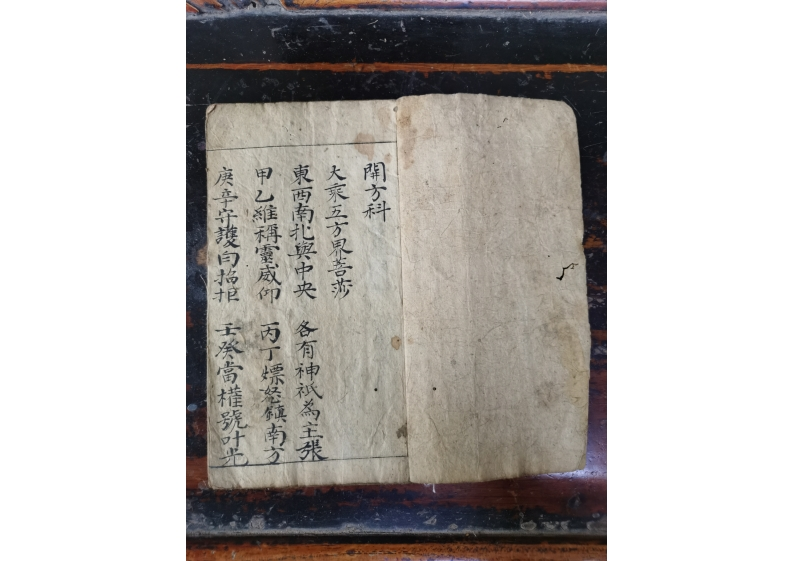 開方科
大乘五方界菩莎
東西南北與中央 各有神祇為主張
甲乙維稱靈威仰 丙丁嫖怒鎮南方
庚辛守護白招拒 壬癸當權號叶光